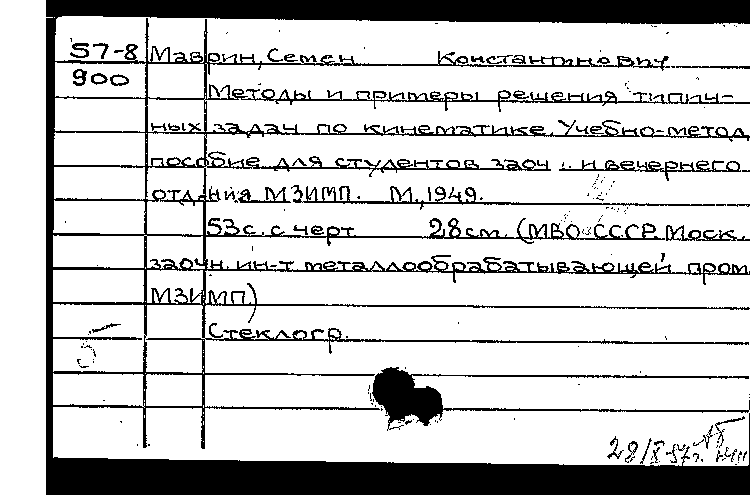 57-8 Маврин, Семен Константинович
900
Методы и примеры решения типич-
ных задач по кинематике. Учебно-метод
пособие для студентов заоч. и вечернего
отд-ния МЗИМП. М., 1949.
53 с. с черт 28 см. (МВО СССР. Моск.
заочн. ин-т металлообрабатывающей пром
МЗИМП)
Стеклогр.
5
28/X-57г.